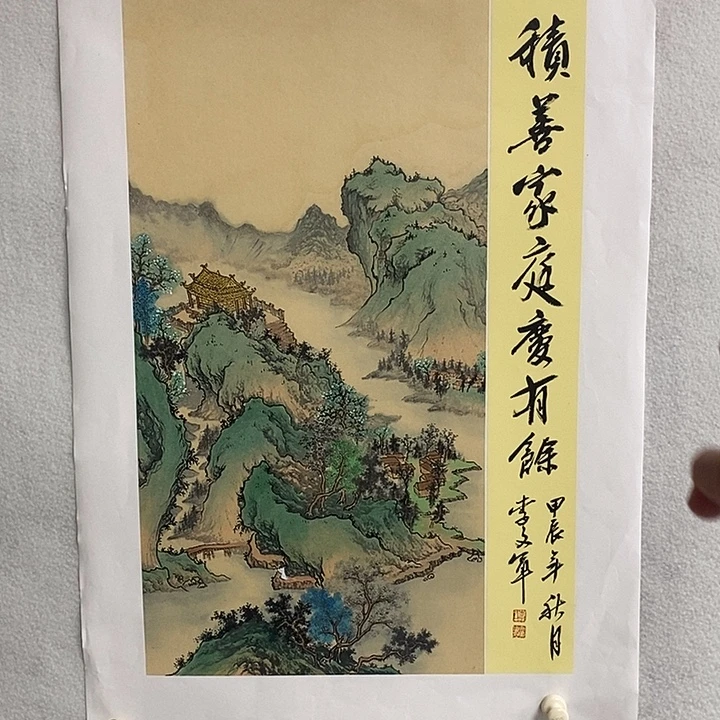 積善家庭慶有餘
甲辰年秋月
李文軍